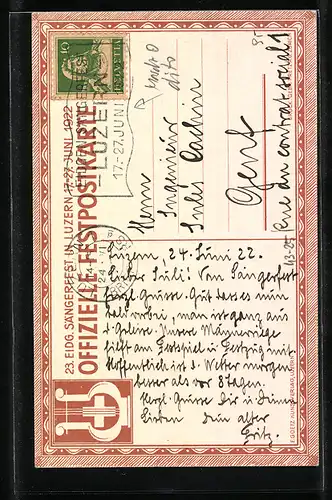 23. EIDG. SÄNGERFEST IN LUZERN 17-27. JUNI 1922
OFFIZIELLE FESTPOSTKARTE
10
HELVETIA
EIDG. SÄNGERFEST
LUZERN
17.-27. JUNI
Herrn
Ingenieur
Juls Cachin
Genf
Rue du contrat social 1
Luzern, 24. Juni 22.
Lieber Juli! Vom Sängerfest
herzl. Grüsse. Gut dass es nun
bald vorbei, man ist ganz aus
d. Geleise. Unsere Männerriege
hilft am Festspiel u. Festzug mit.
Hoffentlich ist d. Wetter morgen
besser als vor 8 Tagen.
Herzl. Grüsse Dir u. Deinen
Lieben Dein alter
Fritz.